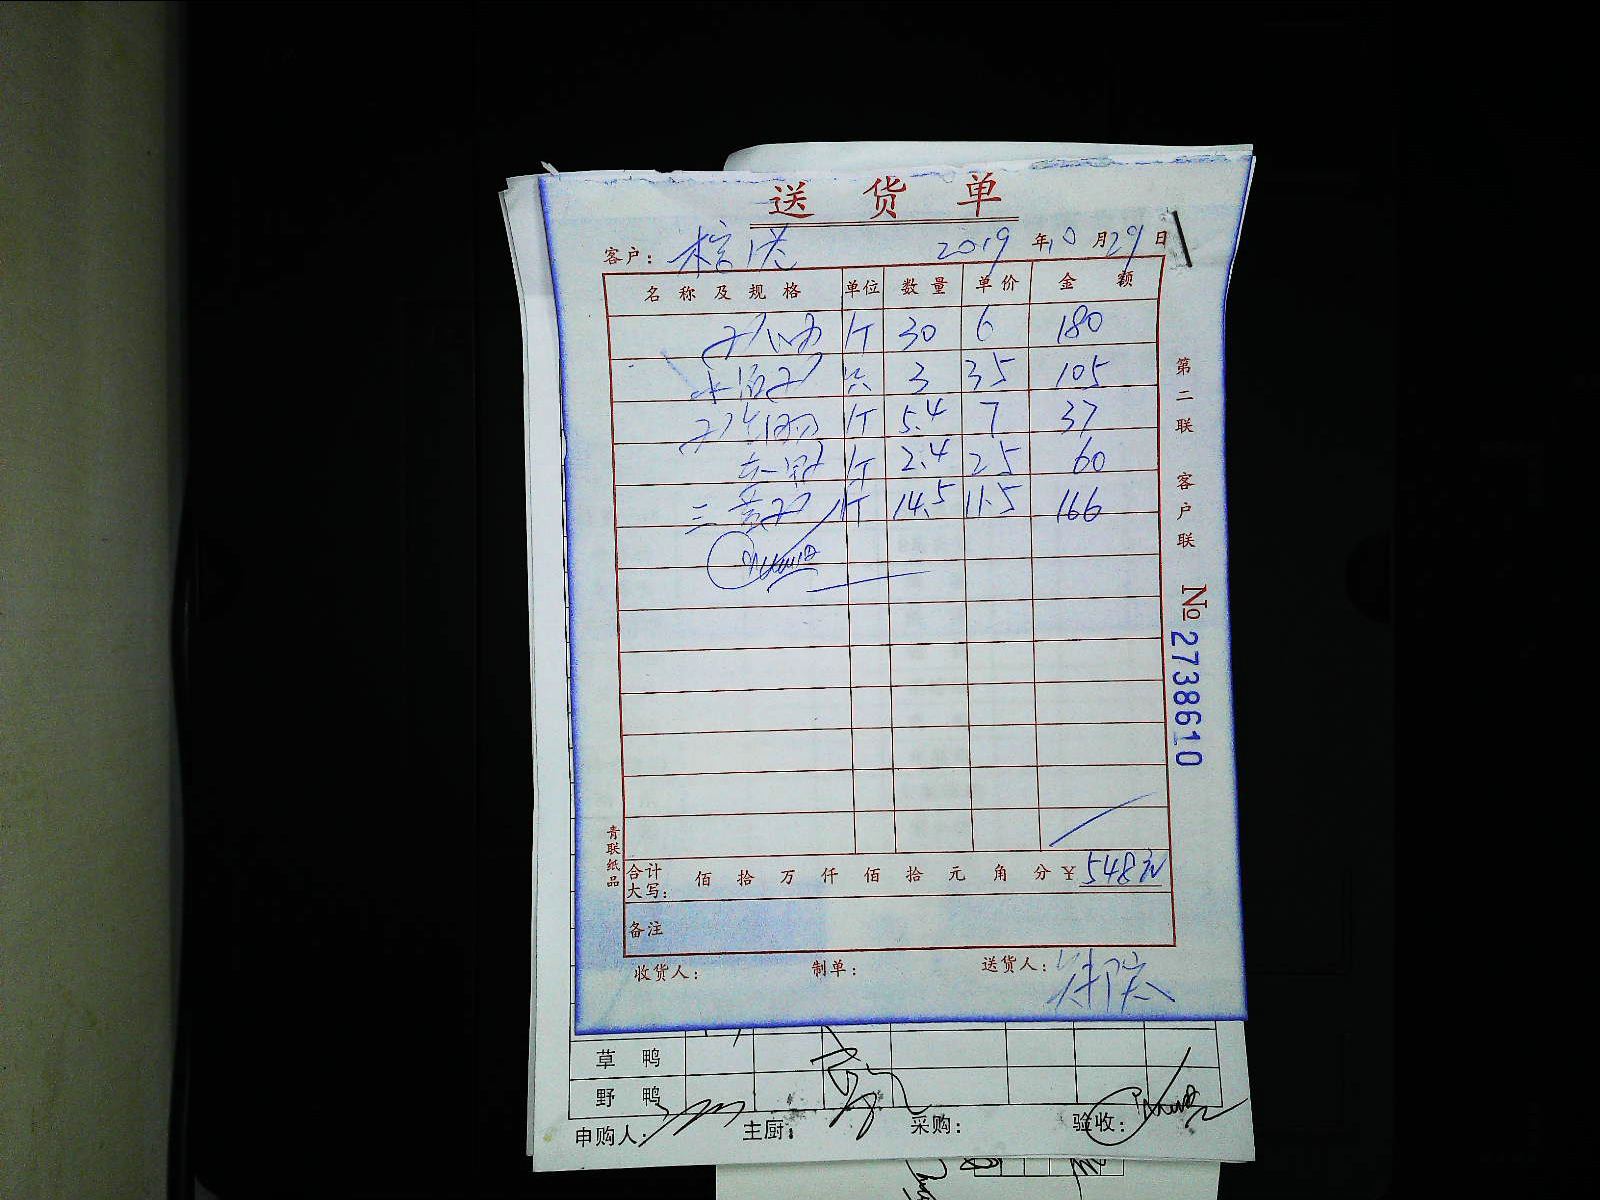 送 货 单
客户： 2019 年 10 月 29 日
名 称 及 规 格 单位 数 量 单 价 金 额
斤 30 6 180
只 3 35 105
斤 5.4 7 37
斤 2.4 25 60
三黄鸡 斤 14.5 11.5 166
第二联 客户联
№ 2738610
青联纸品
合计大写： 佰 拾 万 仟 佰 拾 元 角 分 ¥ 548元
备注
收货人： 制单： 送货人：
草 鸭
野 鸭
申购人： 主厨： 采购： 验收：